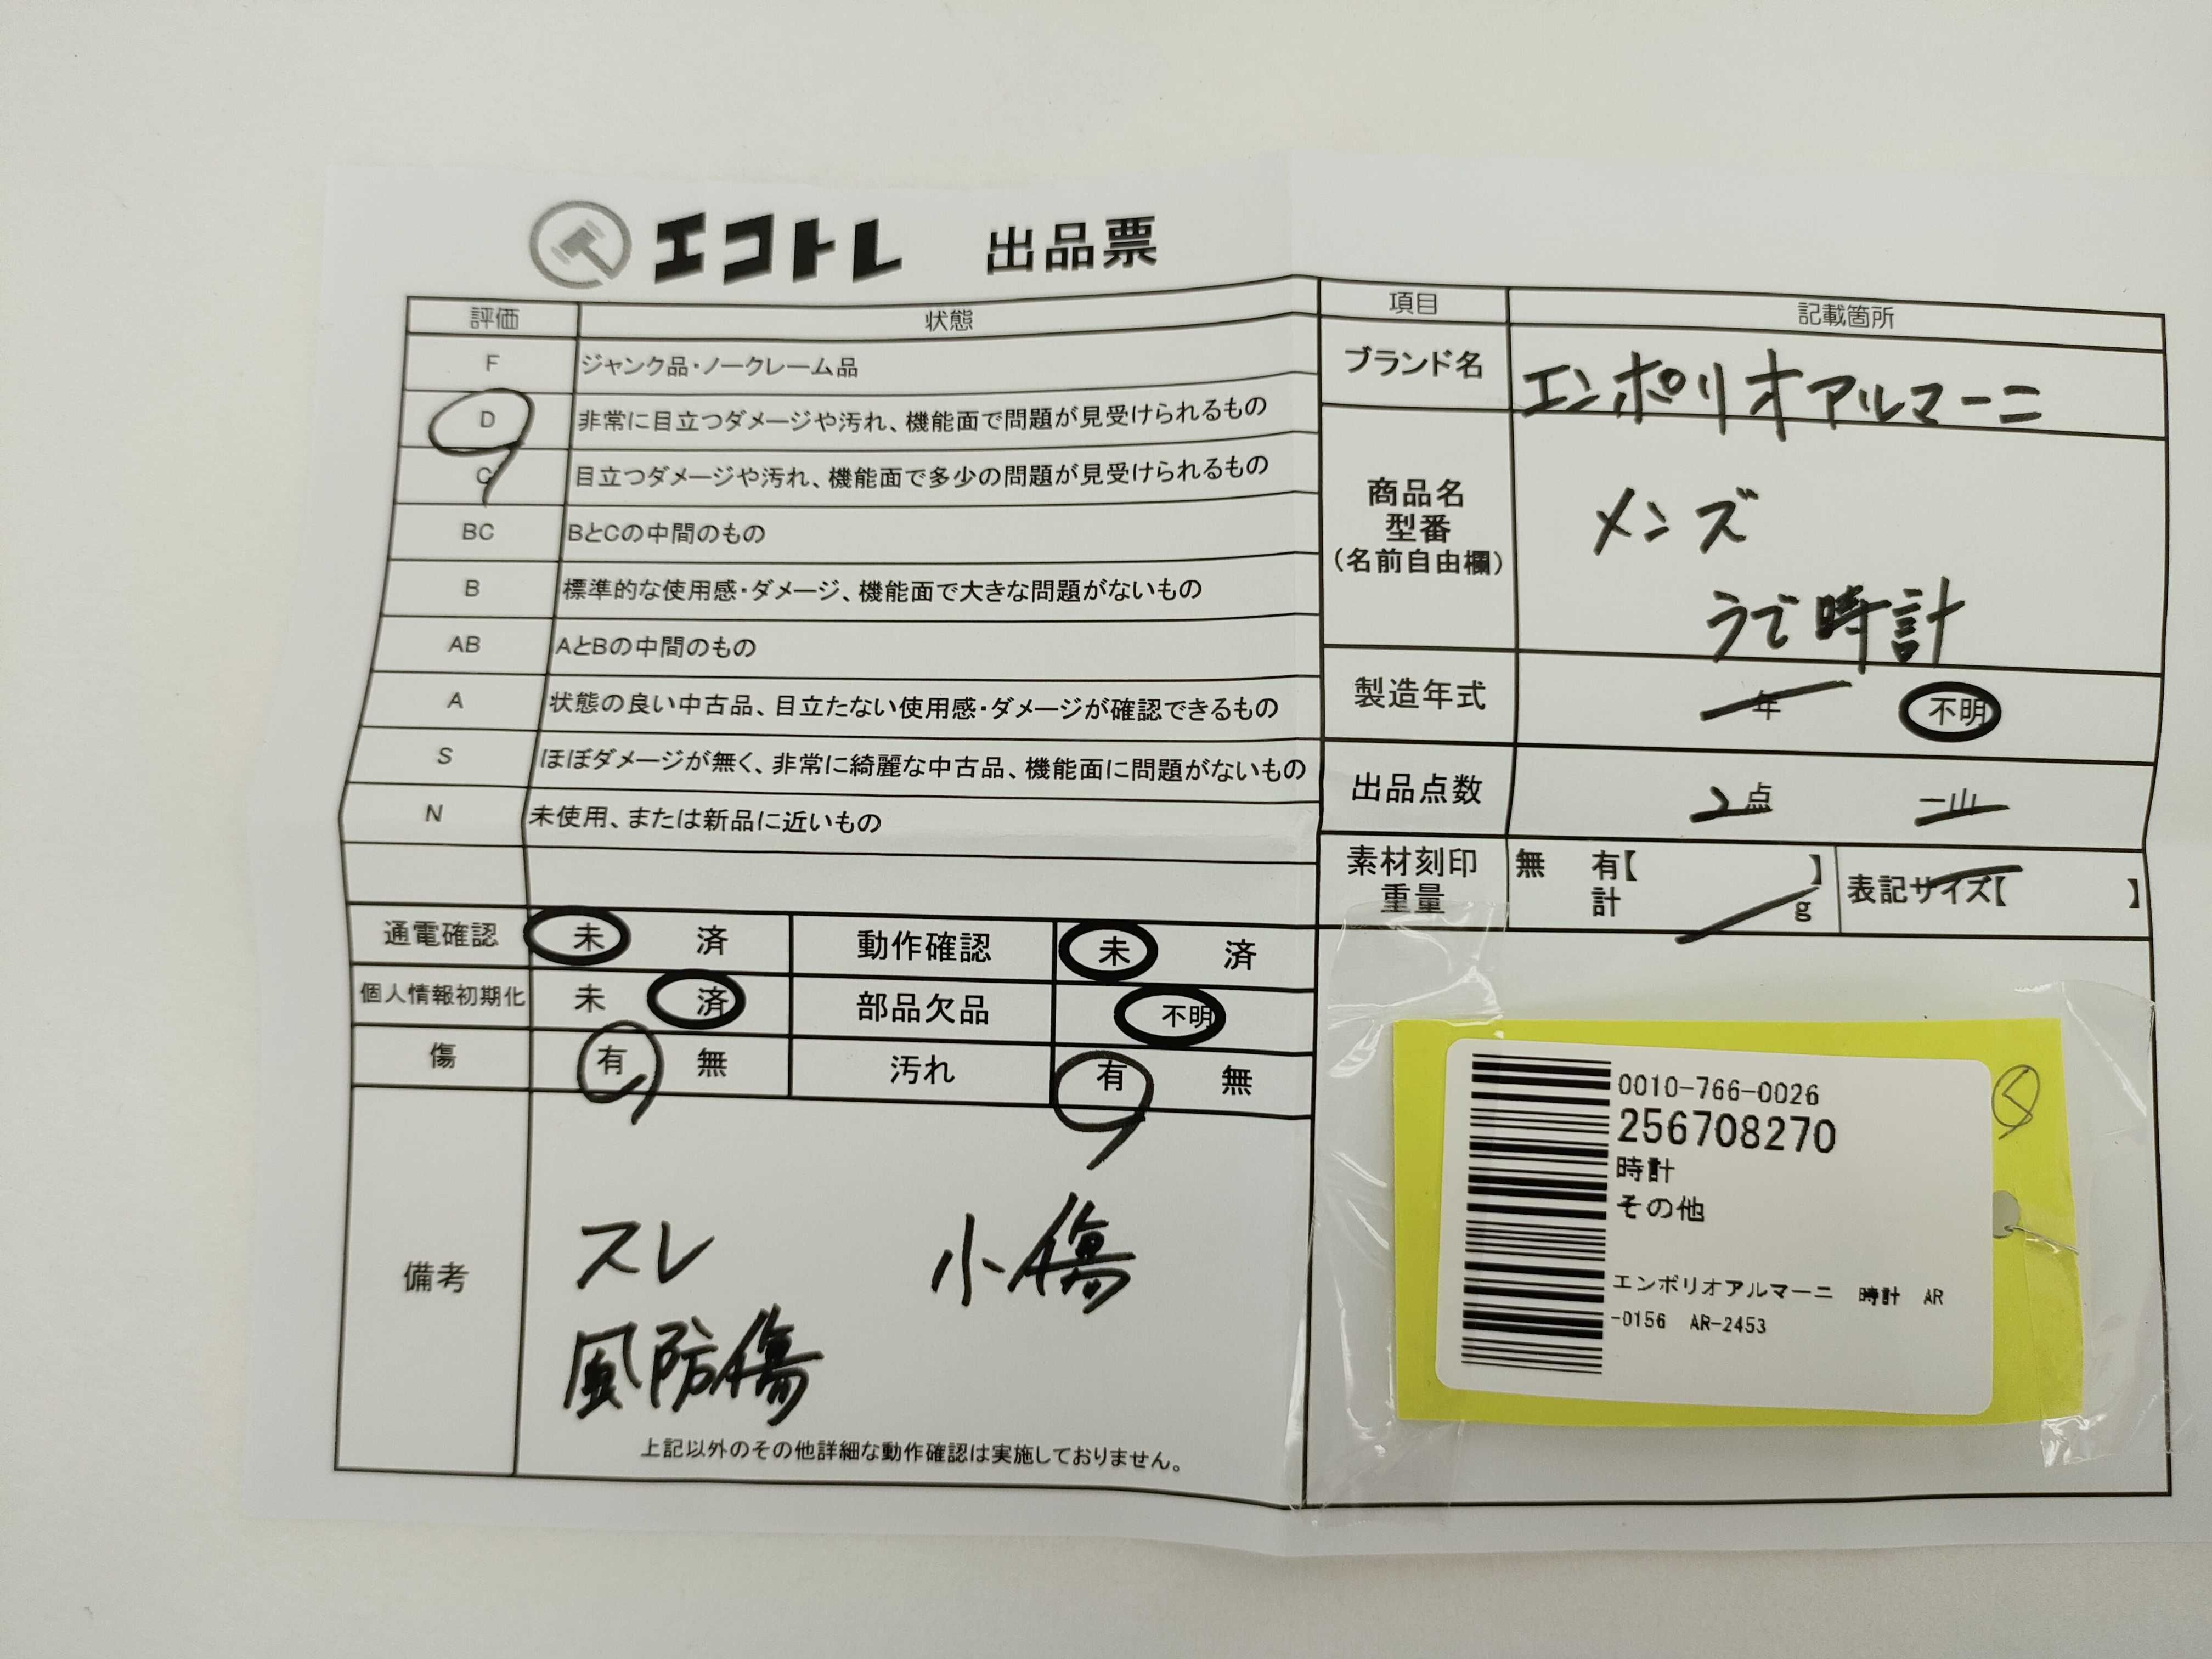 エコトレ 出品票
評価 状態
F ジャンク品・ノークレーム品
D 非常に目立つダメージや汚れ、機能面で問題が見受けられるもの
C 目立つダメージや汚れ、機能面で多少の問題が見受けられるもの
BC BとCの中間のもの
B 標準的な使用感・ダメージ、機能面で大きな問題がないもの
AB AとBの中間のもの
A 状態の良い中古品、目立たない使用感・ダメージが確認できるもの
S ほぼダメージが無く、非常に綺麗な中古品、機能面に問題がないもの
N 未使用、または新品に近いもの
通電確認 未 済 動作確認 未 済
個人情報初期化 未 済 部品欠品 不明
傷 有 無 汚れ 有 無
備考
スレ 小傷
風防傷
上記以外のその他詳細な動作確認は実施しておりません。
項目 記載箇所
ブランド名 エンポリオアルマーニ
商品名
型番
(名前自由欄)
メンズ
うで時計
製造年式 年 不明
出品点数 2点 一山
素材刻印 無 有【 】
重量 計 g
表記サイズ【 】
0010-766-0026
256708270
時計
その他
エンポリオアルマーニ 時計 AR
-0156 AR-2453